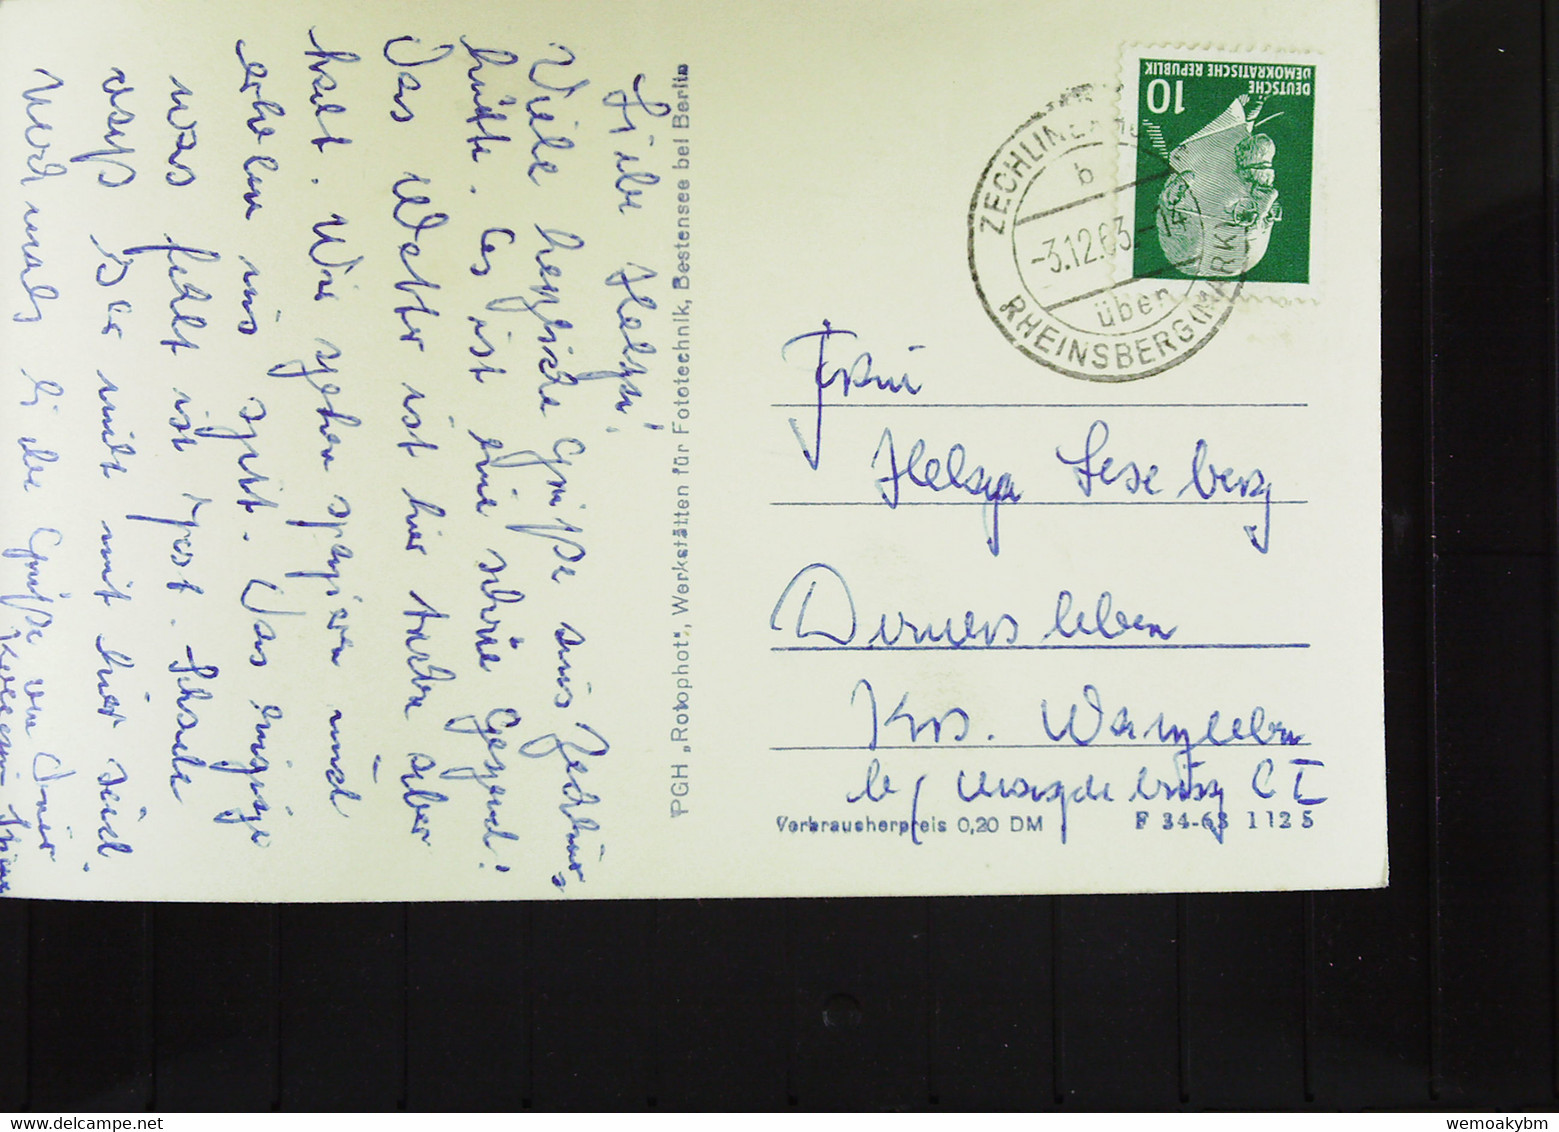 Liebe Helga!
Viele herzliche Grüße aus Zechlinerhütte. Es ist eine schöne Gegend!
Das Wetter ist hier trübe aber
kalt. Wir gehen spazieren und
erholen uns gut. Das einzige
was fehlt ist Post. Schade
daß Ihr nicht mit hier seid.
Nochmals liebe Grüße von Deiner
PGH „Rotophot“, Werkstätten für Fototechnik, Bestensee bei Berlin
DEUTSCHE
DEMOKRATISCHE REPUBLIK
10
ZECHLINERHÜ
b
-3.12.63.-14
über
RHEINSBERG (MARK)
Frau
Helga Leseberg
Wanzleben
b/ Magdeburg
Verbraucherpreis 0,20 DM
F 34-63 1125
wemoakybm